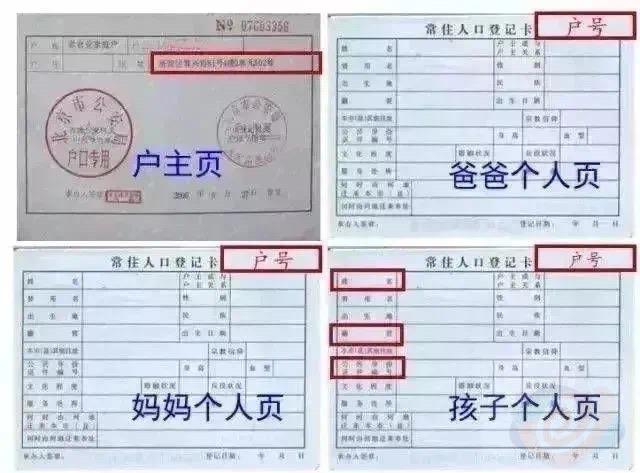 No 07C03356
户别 非农业家庭户
户主页
北京市公安局
户口专用
承办人签章
常住人口登记卡
户号
姓名
户主或与户主关系
曾用名
性别
出生地
民族
籍贯
出生日期
本市(县)其他住址
宗教信仰
公民身份证件编号
身高
血型
文化程度
婚姻状况
兵役状况
服务处所
何时由何地迁来本市(县)
何时由何地迁来本址
承办人签章:
登记日期: 年 月 日
爸爸个人页
常住人口登记卡
户号
姓名
户主或与户主关系
曾用名
性别
出生地
民族
籍贯
出生日期
本市(县)其他住址
宗教信仰
公民身份证件编号
身高
血型
文化程度
婚姻状况
兵役状况
服务处所
何时由何地迁来本市(县)
何时由何地迁来本址
承办人签章:
登记日期: 年 月 日
妈妈个人页
常住人口登记卡
户号
姓名
户主或与户主关系
曾用名
性别
出生地
民族
籍贯
出生日期
本市(县)其他住址
宗教信仰
公民身份证件编号
身高
血型
文化程度
婚姻状况
兵役状况
服务处所
何时由何地迁来本市(县)
何时由何地迁来本址
承办人签章:
登记日期: 年 月 日
孩子个人页